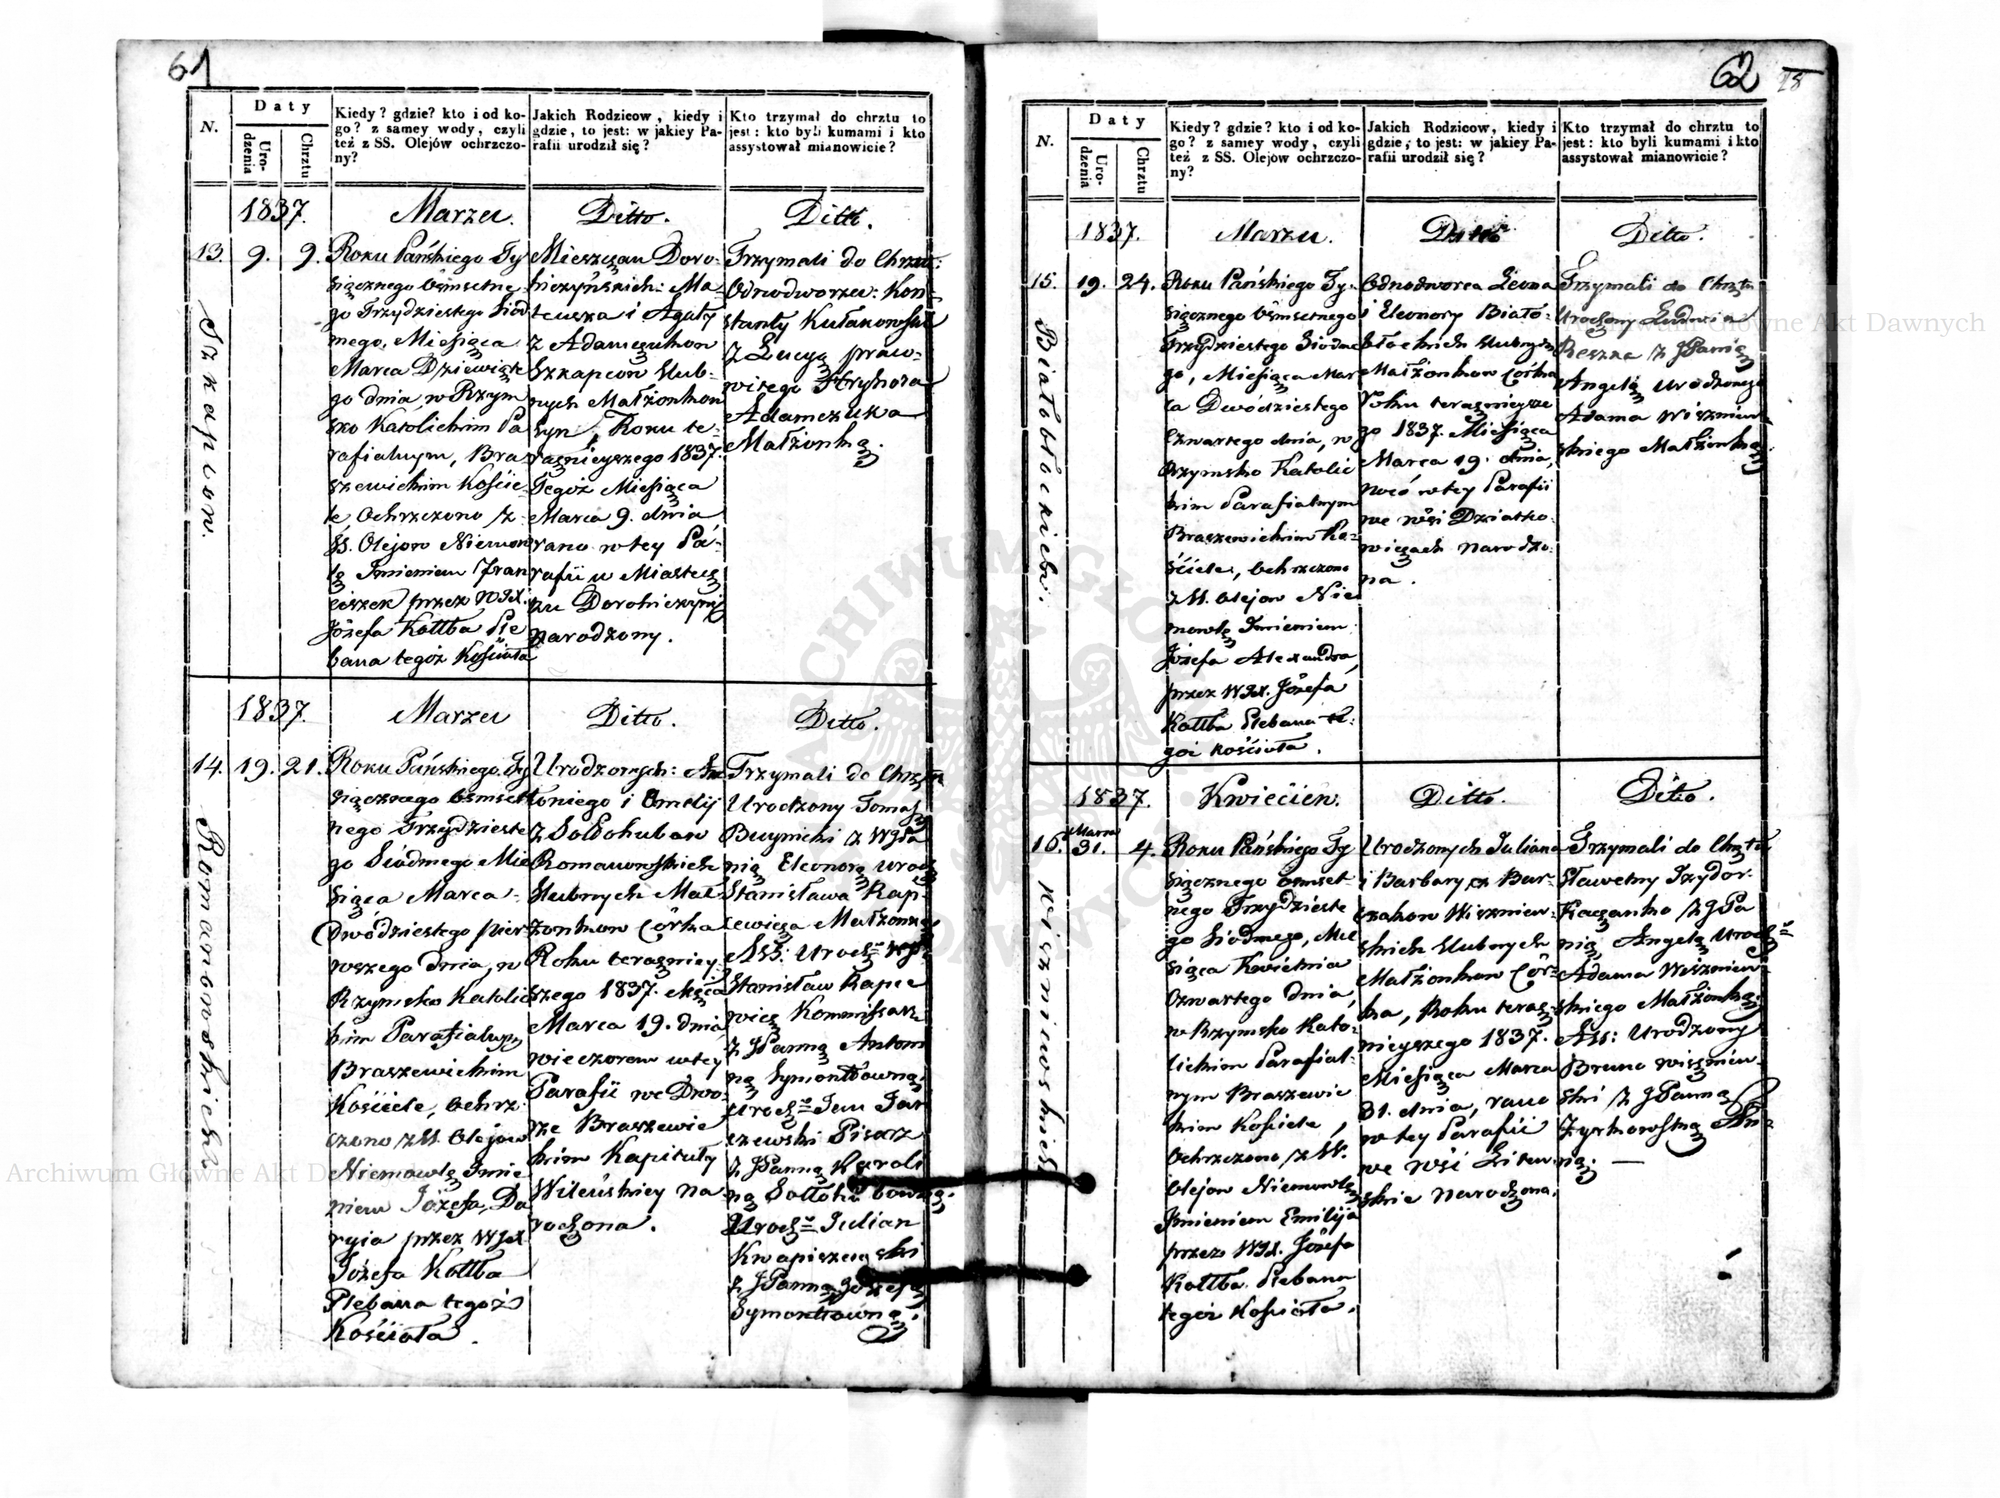 61
N.
Daty
Urodzenia
Chrztu
Kiedy? gdzie? kto i od ko-
go? z samey wody, czyli
też z SS. Olejów ochrzczo-
ny?
Jakich Rodzicow, kiedy i
gdzie, to jest: w jakiey Pa-
rafii urodził się?
Kto trzymał do chrztu to
jest: kto byli kumami i kto
assystował mianowicie?
1837.
Marzec.
Ditto.
Ditto.
13. 9. 9.
Szkapcow.
Roku Pańskiego Ty
siącznego Ośmsetne
go Trzydziestego Siód
mego, Miesiąca
Marca Dziewiąte
go dnia, w Rzym
sko Katolickim Pa
rafialnym, Bra
szewickim Koście-
le, Ochrzczono z
SS. Olejow Niemow
lę Imieniem Fran
ciszek przez WJX.
Józefa Kottba Ple
bana tegoż Kościoła
Mieszczan Doro-
hiczyńskich: Ma-
teusza i Agaty
z Adamczukow
Szkapcow Slub-
nych Małżonkow
syn, Roku te-
raznieyszego 1837.
Tegoż Miesiąca
Marca 9. dnia
rano w tey Pa-
rafii w Miastecz
ku Dorohiczynie
narodzony.
Trzymali do Chrztu:
Odnodworzec: Kon-
stanty Kułakowski
z Łucyą praw-
witego Hryhora
Adamczuka
Małżonką.
1837.
Marzec
Ditto.
Ditto.
14. 19. 21.
Romanowskich
Roku Pańskiego Ty
siącznego Ośmset
nego Trzydzieste
go Siódmego Mie
siąca Marca
Dwódziestego pier
wszego dnia, w
Rzymsko Katolic
kim Parafialnym
Braszewickim
Kościele, Ochrz
czono z SS. Olejow
Niemowlę Imie
niem Józefa, Da
ryia przez WJX
Józefa Kottba
Plebana tegoż
Kościoła.
Urodzonych: An
toniego i Emilij
z Sołłohubow
Romanowskich
Slubnych Mał
żonkow Córka
Roku teraźniey
szego 1837. Msca
Marca 19. dnia
wieczorem w tey
Parafii we Dwo
rze Braszewic
kim Kapituły
Wileńskiey na
rodzona.
Trzymali do Chrztu
Urodzony Tomasz
Buynicki z WJPa
nią Eleonorą Urodz
Stanisława Kap
cewicza Małżonką
Ass: Urodz: WJP
Stanisław Kapce
wicz Kommissarz
z JPanną Anton
ną Symontowną,
Urodz: Jan Jar
czewski Pisarz
z JPanną Karoli
ną Sołłohubowną.
Urodz: Julian
Kwapiszewski
z JPanną Józefą
Symontowną.
62
28
N.
Daty
Urodzenia
Chrztu
Kiedy? gdzie? kto i od ko-
go? z samey wody, czyli
też z SS. Olejów ochrzczo-
ny?
Jakich Rodzicow, kiedy i
gdzie, to jest: w jakiey Pa-
rafii urodził się?
Kto trzymał do chrztu to
jest: kto byli kumami i kto
assystował mianowicie?
1837.
Marzec.
Ditto
Ditto.
15. 19. 24.
Białobłockich.
Roku Pańskiego Ty-
siącznego Ośmsetnego
Trzydziestego Siódme
go, Miesiąca Mar
ca Dwódziestego
Czwartego dnia, w
Rzymsko Katolic
kim Parafialnym
Braszewickim Ko-
ściele, Ochrzczono
z SS. Olejow Nie
mowlę Imieniem
Józefa Alexandra,
przez WJX. Józefa
Kottba Plebana te-
goż Kościoła.
Odnodworca Leona
i Eleonory Biało-
błockich Slubnych
Małżonkow Córka
Roku teraznieysze
go 1837. Miesiąca
Marca 19. dnia,
w tey Parafii
we wsi Dziatko-
wiczach narodzo-
na.
Trzymali do Chrztu
Urodzony Ludwik
Reszka z JPanią
Angelą Urodzonego
Adama Wiszniew
skiego Małżonką
1837.
Kwiecień.
Ditto.
Ditto.
16. Marca 31. 4.
Wiszniewskich
Roku Pańskiego Ty
siącznego Ośmset-
nego Trzydzieste
go Siódmego, Mie
siąca Kwietnia
Czwartego dnia,
w Rzymsko Kato-
lickim Parafial-
nym Braszewic
kim Kościele,
Ochrzczono z SS.
Olejow Niemowlę
Imieniem Emilija
przez WJX. Józefa
Kottba Plebana
tegoż Kościoła.
Urodzonych Juliana
i Barbary z Bur-
czakow Wiszniew-
skich Slubnych
Małżonkow Cór-
ka, Roku teraz-
nieyszego 1837.
Miesiąca Marca
31. dnia, rano
w tey Parafii
we wsi Litew-
skie narodzona.
Trzymali do Chrztu
Sławetny Izydor
Kaczanko z JPa
nią Angelą Urodz:
Adama Wiszniew
skiego Małżonką.
Ass: Urodzony
Bruno Wiszniew
ski z JPanną
Żychorską An-
ną. —
Archiwum Główne Akt Dawnych
Archiwum Główne Akt Dawnych
ARCHIWUM GŁÓWNE AKT DAWNYCH